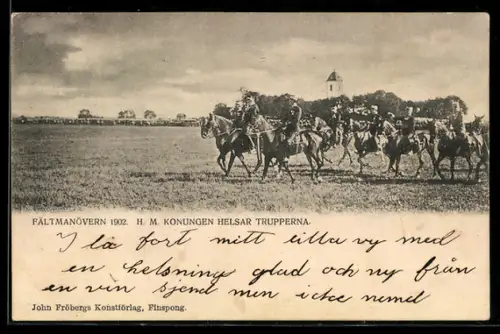 FÄLTMANÖVERN 1902. H. M. KONUNGEN HELSAR TRUPPERNA.
I lä fort mitt lilla vy med
en helsning glad och ny från
en vän sjend men icke nemd
John Fröbergs Konstförlag, Finspong.